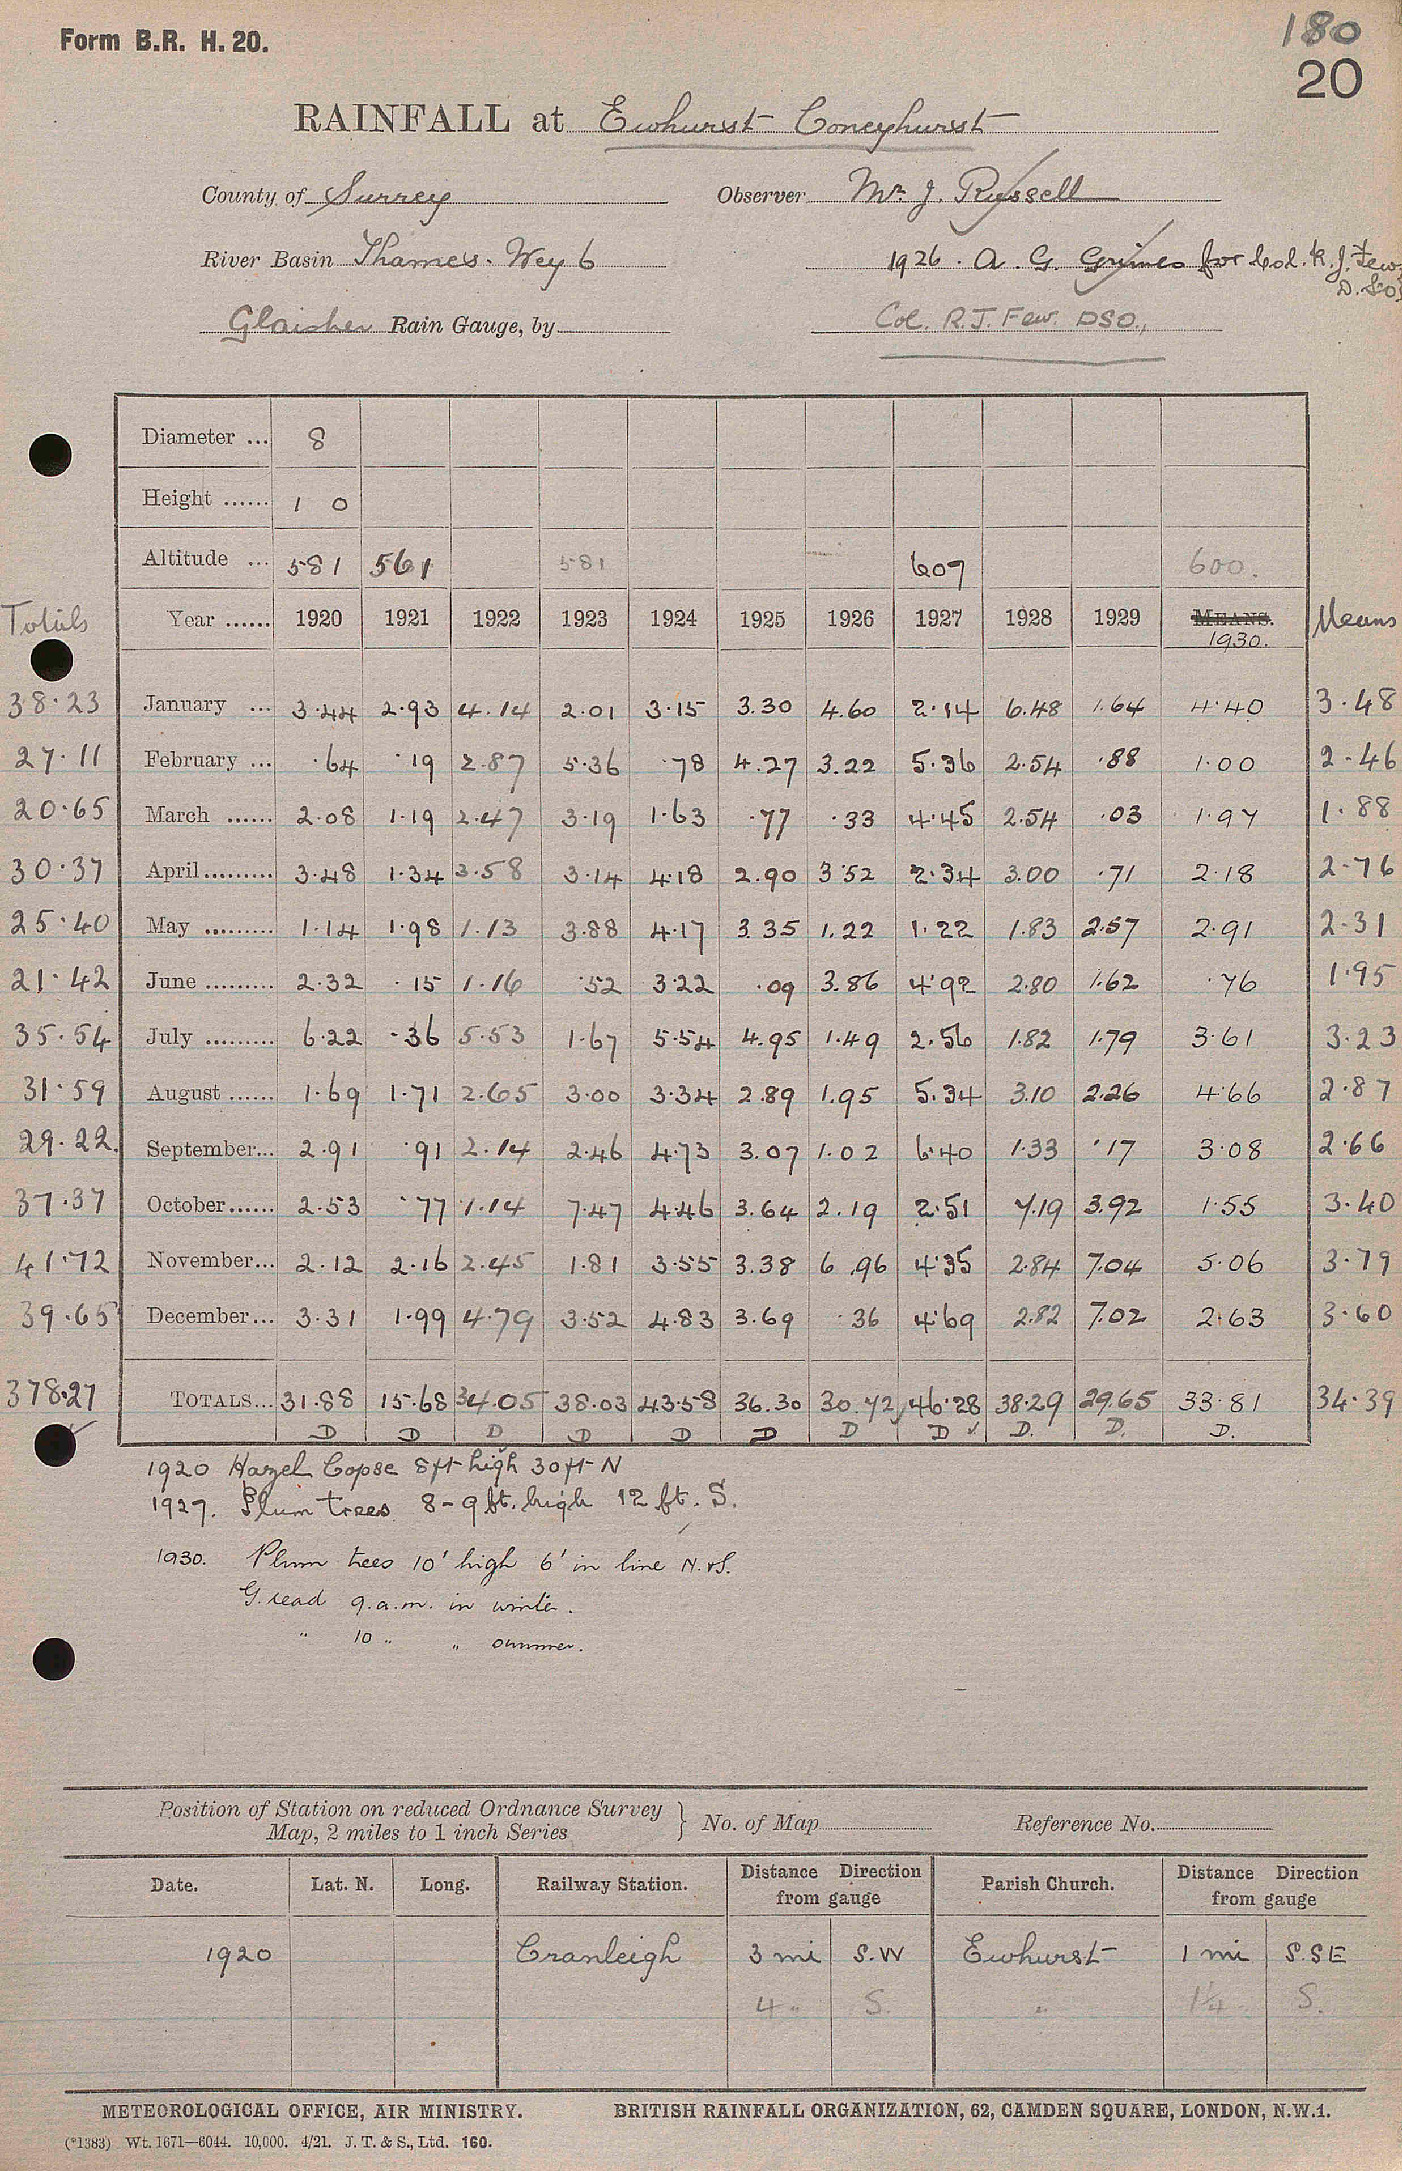 Form B.R. H. 20.
180
20
RAINFALL at Ewhurst Coneyhurst
County of Surrey Observer Mr. J. Russell
River Basin Thames. Wey 6 1926. A. G. Grimes for Col. R. J. Few D.S.O.
Glaisher Rain Gauge, by Col. R.J. Few. DSO.,
Diameter ... 8
Height ...... 1 0
Altitude ... 581 561 581 607 600.
Totals Year ...... 1920 1921 1922 1923 1924 1925 1926 1927 1928 1929 MEANS. 1930. Means
38.23 January ... 3.44 2.93 4.14 2.01 3.15 3.30 4.60 2.14 6.48 1.64 4.40 3.48
27.11 February ... .64 .19 2.87 5.36 .78 4.27 3.22 5.36 2.54 .88 1.00 2.46
20.65 March ...... 2.08 1.19 2.47 3.19 1.63 .77 .33 4.45 2.54 .03 1.97 1.88
30.37 April ......... 3.48 1.34 3.58 3.14 4.18 2.90 3.52 2.34 3.00 .71 2.18 2.76
25.40 May ......... 1.14 1.98 1.13 3.88 4.17 3.35 1.22 1.22 1.83 2.57 2.91 2.31
21.42 June ......... 2.32 .15 1.16 .52 3.22 .09 3.86 4.92 2.80 1.62 .76 1.95
35.54 July ......... 6.22 .36 5.53 1.67 5.54 4.95 1.49 2.56 1.82 1.79 3.61 3.23
31.59 August ...... 1.69 1.71 2.65 3.00 3.34 2.89 1.95 5.34 3.10 2.26 4.66 2.87
29.22. September... 2.91 .91 2.14 2.46 4.73 3.07 1.02 6.40 1.33 .17 3.08 2.66
37.37 October...... 2.53 .77 1.14 7.47 4.46 3.64 2.19 2.51 7.19 3.92 1.55 3.40
41.72 November... 2.12 2.16 2.45 1.81 3.55 3.38 6.96 4.35 2.84 7.04 5.06 3.79
39.65 December... 3.31 1.99 4.79 3.52 4.83 3.69 .36 4.69 2.82 7.02 2.63 3.60
378.27 TOTALS... 31.88 15.68 34.05 38.03 43.58 36.30 30.72 46.28 38.29 29.65 33.81 34.39
D D D D D D D D D. D. D.
1920 Hazel Copse 8ft high 30ft N
1927. Plum trees 8-9ft. high 12 ft. S.
1930. Plum trees 10' high 6' in line N.&S.
G. read 9.a.m. in winter.
" 10 " " summer.
Position of Station on reduced Ordnance Survey Map, 2 miles to 1 inch Series } No. of Map Reference No.
Date. Lat. N. Long. Railway Station. Distance Direction from gauge Parish Church. Distance Direction from gauge
1920 Cranleigh 3 mi S.W Ewhurst 1 mi S.SE
4 " S. " 1¼ " S.
METEOROLOGICAL OFFICE, AIR MINISTRY. BRITISH RAINFALL ORGANIZATION, 62, CAMDEN SQUARE, LONDON, N.W.1.
(*1383) Wt. 1671—6044. 10,000. 4/21. J. T. & S., Ltd. 160.